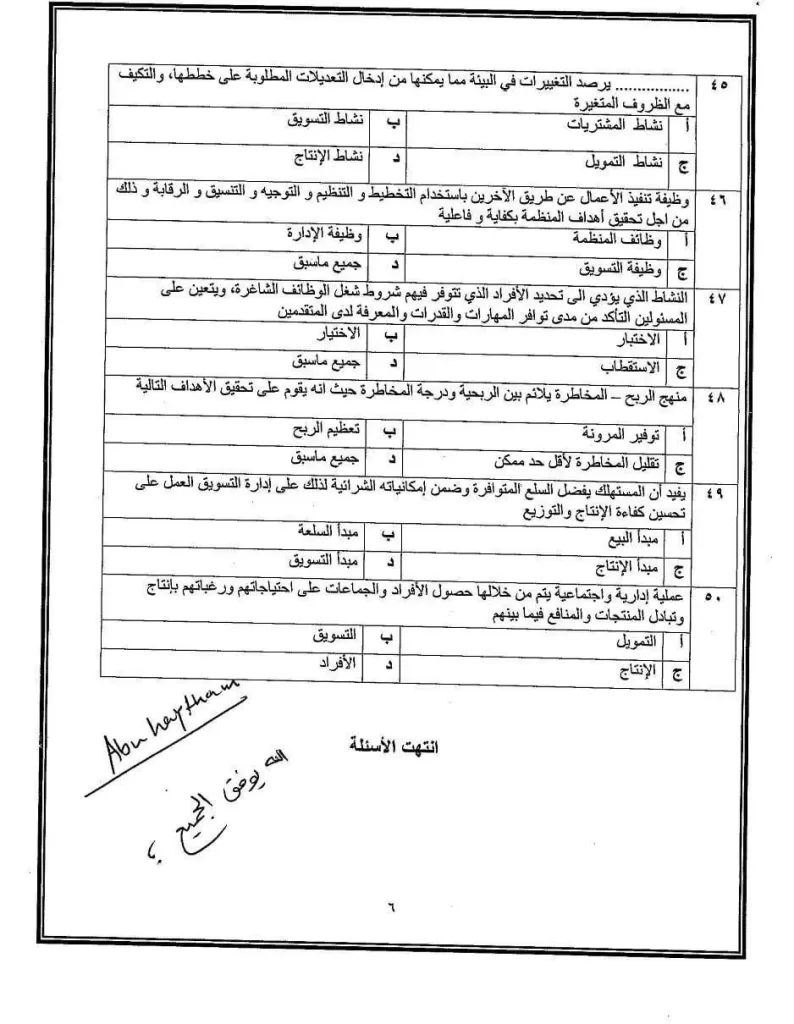 ٤٥ ................. يرصد التغييرات في البيئة مما يمكنها من إدخال التعديلات المطلوبة على خططها، والتكيف
مع الظروف المتغيرة
أ نشاط المشتريات ب نشاط التسويق
ج نشاط التمويل د نشاط الإنتاج
٤٦ وظيفة تنفيذ الأعمال عن طريق الآخرين باستخدام التخطيط و التنظيم و التوجيه و التنسيق و الرقابة و ذلك
من اجل تحقيق أهداف المنظمة بكفاية و فاعلية
أ وظائف المنظمة ب وظيفة الإدارة
ج وظيفة التسويق د جميع ماسبق
٤٧ النشاط الذي يؤدي الى تحديد الأفراد الذي تتوفر فيهم شروط شغل الوظائف الشاغرة، ويتعين على
المسئولين التأكد من مدى توافر المهارات والقدرات والمعرفة لدى المتقدمين
أ الاختبار ب الاختيار
ج الاستقطاب د جميع ماسبق
٤٨ منهج الربح – المخاطرة يلائم بين الربحية ودرجة المخاطرة حيث انه يقوم على تحقيق الأهداف التالية
أ توفير المرونة ب تعظيم الربح
ج تقليل المخاطرة لأقل حد ممكن د جميع ماسبق
٤٩ يفيد أن المستهلك يفضل السلع المتوافرة وضمن إمكانياته الشرائية لذلك على إدارة التسويق العمل على
تحسين كفاءة الإنتاج والتوزيع
أ مبدأ البيع ب مبدأ السلعة
ج مبدأ الإنتاج د مبدأ التسويق
٥٠ عملية إدارية واجتماعية يتم من خلالها حصول الأفراد والجماعات على احتياجاتهم ورغباتهم بإنتاج
وتبادل المنتجات والمنافع فيما بينهم
أ التمويل ب التسويق
ج الإنتاج د الأفراد
انتهت الأسئلة
Abu haytham
الله يوفق الجميع
٦